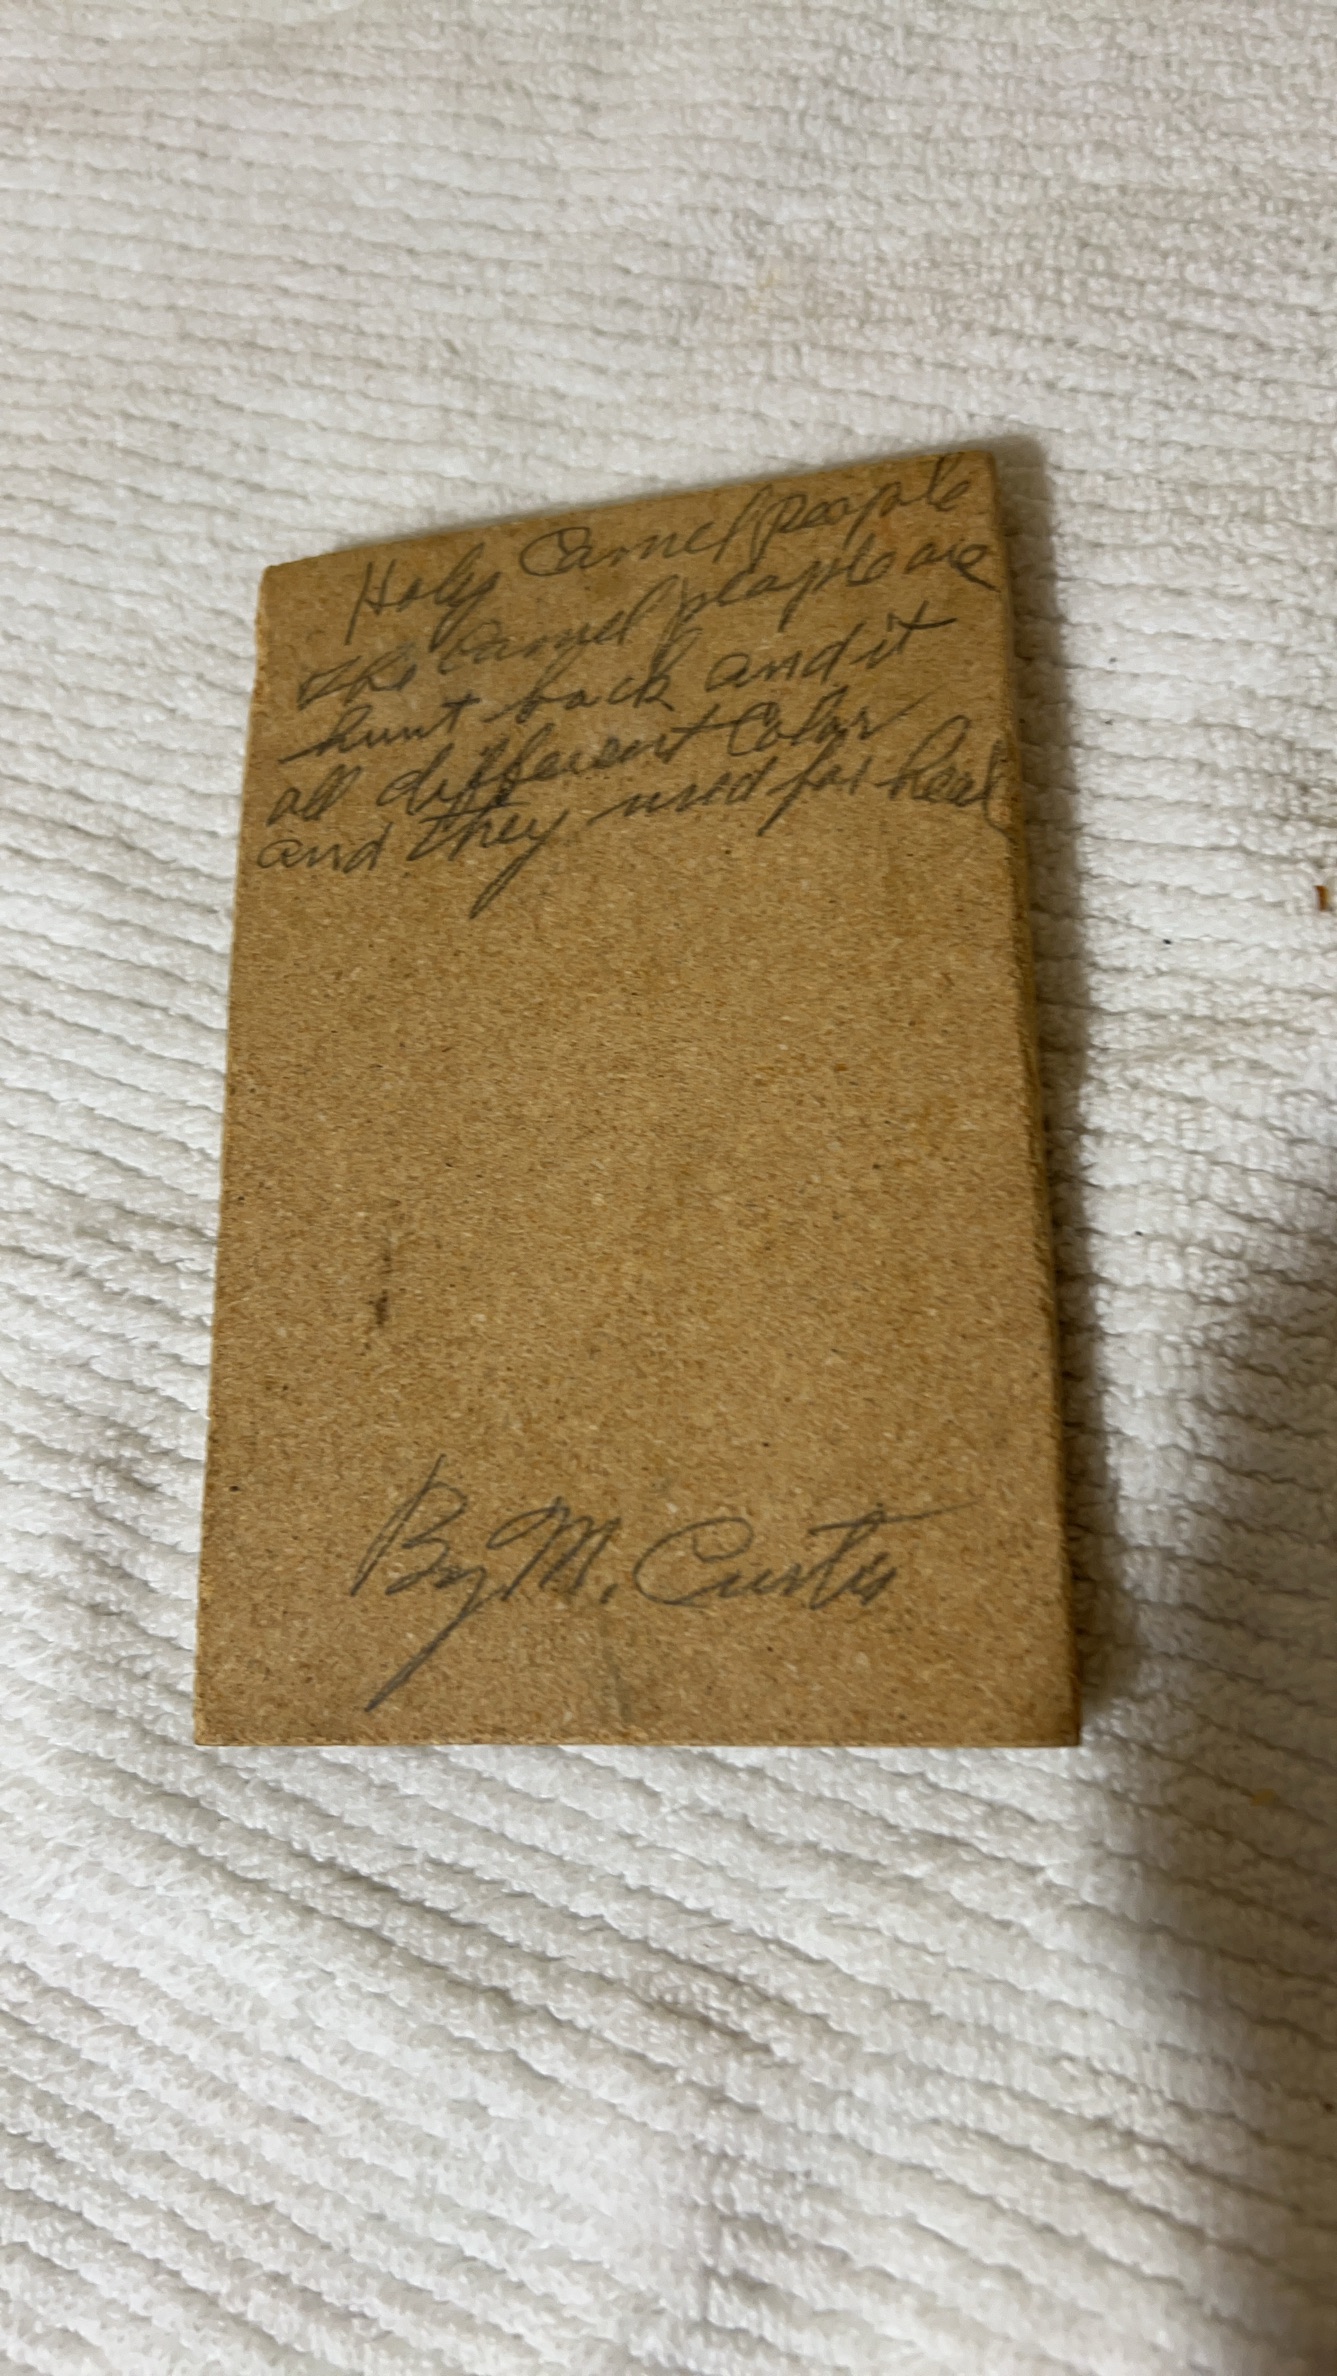 Holy Camel people
The Camel people are
hunt back and it
all different Color
and they used for heal
By M. Curtis